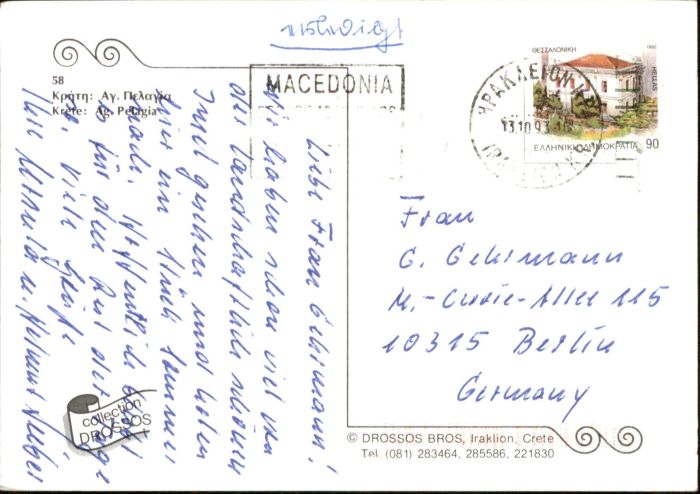 58
Κρήτη: Αγ. Πελαγία
Kreta: Ag. Pelagia
MACEDONIA
ΘΕΣΣΑΛΟΝΙΚΗ
1992
HELLAS
ΕΛΛΗΝΙΚΗ ΔΗΜΟΚΡΑΤΙΑ 90
ΗΡΑΚΛΕΙΟΝ ΚΡ
13.10.93
Liebe Frau Gehrmann!
Wir haben schon viel von
der landschaftlich schönen
Insel gesehen und haben
hier ein Stück Sommer
Hoffentlich
so für den Rest der Tage
Viele Grüße
Ihre u. Helmut
Frau
G. Gehrmann
M.-Curie-Allee 115
10315 Berlin
Germany
collection
DROSSOS
© DROSSOS BROS, Iraklion, Crete
Tel. (081) 283464, 285586, 221830